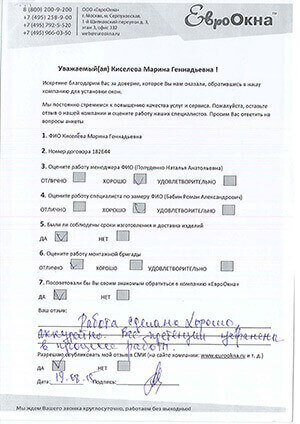 8 (800) 200-9-200
+7 (495) 258-9-00
+7 (495) 792-5-520
+7 (495) 966-03-50
ООО «ЕвроОкна»
г. Москва, м. Серпуховская,
1-й Щипковский переулок д. 3,
этаж 3, офис 332
ЕвроОкна
Уважаемый(ая) Киселева Марина Геннадьевна !
Искренне благодарим Вас за доверие, которое Вы нам оказали, обратившись в нашу
компанию для установки окон.
Мы постоянно стремимся к повышению качества услуг и сервиса. Пожалуйста, оставьте
отзыв о нашей компании и оцените работу наших специалистов. Просим Вас ответить на
вопросы анкеты.
1. ФИО Киселева Марина Геннадьевна
2. Номер договора 182644
3. Оцените работу менеджера ФИО (Полуденко Наталья Анатольевна)
ОТЛИЧНО ХОРОШО УДОВЛЕТВОРИТЕЛЬНО
4. Оцените работу специалиста по замеру ФИО (Бабин Роман Александрович)
ОТЛИЧНО ХОРОШО УДОВЛЕТВОРИТЕЛЬНО
5. Были ли соблюдены сроки изготовления и доставки изделий
ДА НЕТ
6. Оцените работу монтажной бригады
ОТЛИЧНО ХОРОШО УДОВЛЕТВОРИТЕЛЬНО
7. Посоветовали бы Вы своим знакомым обратиться к компании «ЕвроОкна»
ДА НЕТ
Ваш отзыв:
Работа сделана хорошо
аккуратно. Все претензии устранены
в процессе работ.
Разрешаю опубликовать мой отзыв в СМИ (на сайте компании: www.eurookna.ru и т. д.)
ДА НЕТ
Дата: 19.08.15 Подпись:
Мы ждем Вашего звонка круглосуточно, работаем без выходных!